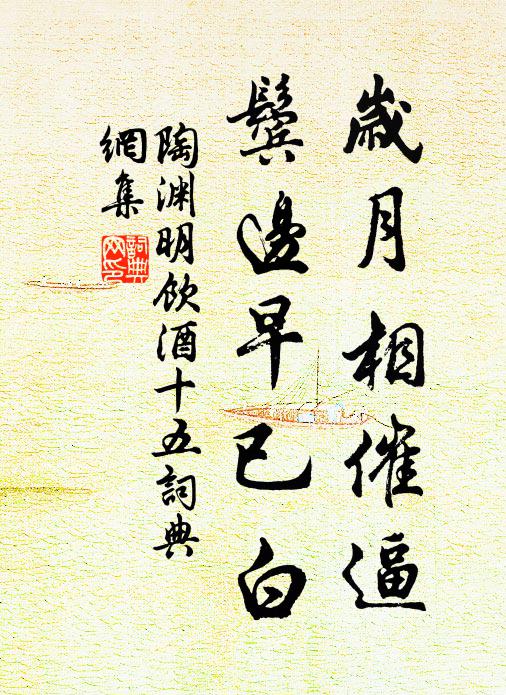 歲月相催逼
鬢邊早已白
陶淵明飲酒十五詞典
網集
詞典
网印